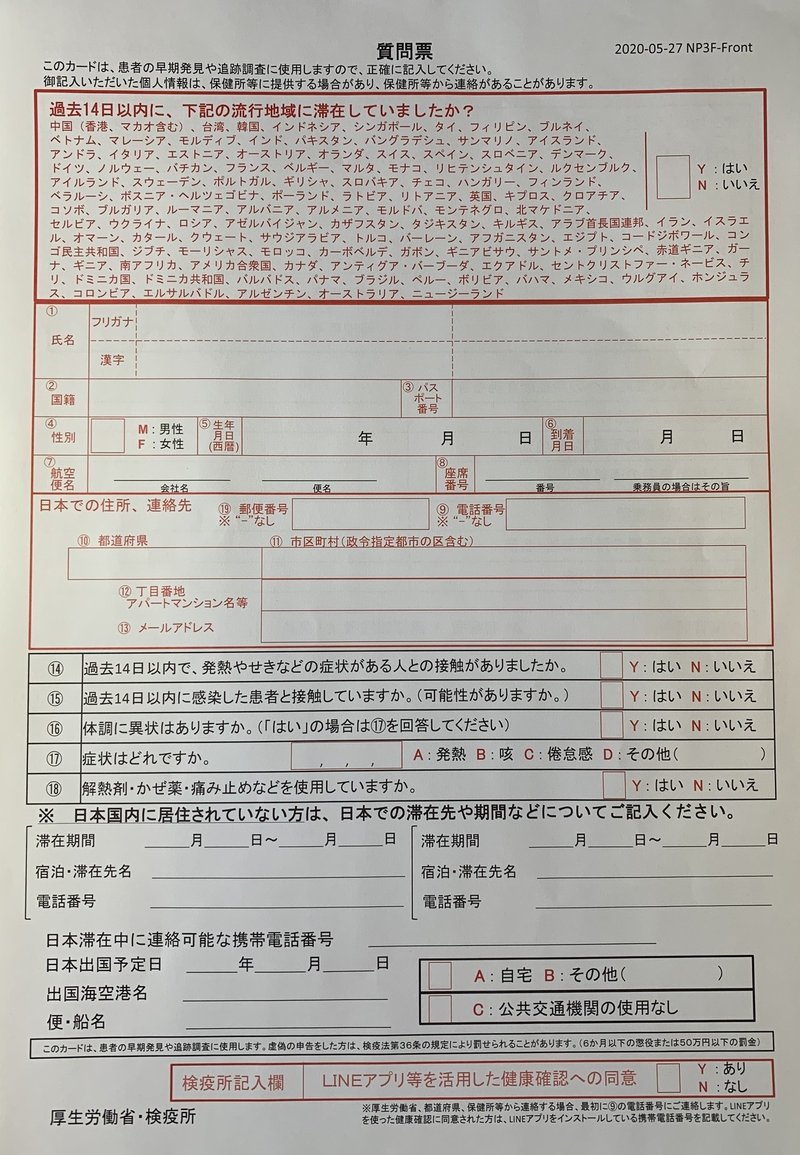 質問票
2020-05-27 NP3F-Front
このカードは、患者の早期発見や追跡調査に使用しますので、正確に記入してください。
御記入いただいた個人情報は、保健所等に提供する場合があり、保健所等から連絡があることがあります。
過去14日以内に、下記の流行地域に滞在していましたか?
中国(香港、マカオ含む)、台湾、韓国、インドネシア、シンガポール、タイ、フィリピン、ブルネイ、
ベトナム、マレーシア、モルディブ、インド、パキスタン、バングラデシュ、サンマリノ、アイスランド、
アンドラ、イタリア、エストニア、オーストリア、オランダ、スイス、スペイン、スロベニア、デンマーク、
ドイツ、ノルウェー、バチカン、フランス、ベルギー、マルタ、モナコ、リヒテンシュタイン、ルクセンブルク、
アイルランド、スウェーデン、ポルトガル、ギリシャ、スロバキア、チェコ、ハンガリー、フィンランド、
ベラルーシ、ボスニア・ヘルツェゴビナ、ポーランド、ラトビア、リトアニア、英国、キプロス、クロアチア、
コソボ、ブルガリア、ルーマニア、アルバニア、アルメニア、モルドバ、モンテネグロ、北マケドニア、
セルビア、ウクライナ、ロシア、アゼルバイジャン、カザフスタン、タジキスタン、キルギス、アラブ首長国連邦、イラン、イスラエ
ル、オマーン、カタール、クウェート、サウジアラビア、トルコ、バーレーン、アフガニスタン、エジプト、コードジボワール、コン
ゴ民主共和国、ジブチ、モーリシャス、モロッコ、カーボベルデ、ガボン、ギニアビサウ、サントメ・プリンシペ、赤道ギニア、ガー
ナ、ギニア、南アフリカ、アメリカ合衆国、カナダ、アンティグア・バーブーダ、エクアドル、セントクリストファー・ネービス、チ
リ、ドミニカ国、ドミニカ共和国、バルバドス、パナマ、ブラジル、ペルー、ボリビア、バハマ、メキシコ、ウルグアイ、ホンジュラ
ス、コロンビア、エルサルバドル、アルゼンチン、オーストラリア、ニュージーランド
Y:はい
N:いいえ
① 氏名
フリガナ
漢字
② 国籍
③ パスポート番号
④ 性別
M:男性
F:女性
⑤ 生年月日(西暦)
年 月 日
⑥ 到着月日
月 日
⑦ 航空便名
会社名
便名
⑧ 座席番号
番号
乗務員の場合はその旨
日本での住所、連絡先
⑲ 郵便番号
※ "-"なし
⑨ 電話番号
※ "-"なし
⑩ 都道府県
⑪ 市区町村(政令指定都市の区含む)
⑫ 丁目番地
アパートマンション名等
⑬ メールアドレス
⑭ 過去14日以内で、発熱やせきなどの症状がある人との接触がありましたか。 Y:はい N:いいえ
⑮ 過去14日以内に感染した患者と接触していますか。(可能性がありますか。) Y:はい N:いいえ
⑯ 体調に異状はありますか。(「はい」の場合は⑰を回答してください) Y:はい N:いいえ
⑰ 症状はどれですか。 , , , A:発熱 B:咳 C:倦怠感 D:その他( )
⑱ 解熱剤・かぜ薬・痛み止めなどを使用していますか。 Y:はい N:いいえ
※ 日本国内に居住されていない方は、日本での滞在先や期間などについてご記入ください。
滞在期間 月 日~ 月 日
宿泊・滞在先名
電話番号
滞在期間 月 日~ 月 日
宿泊・滞在先名
電話番号
日本滞在中に連絡可能な携帯電話番号
日本出国予定日 年 月 日
出国海空港名
便・船名
A:自宅 B:その他( )
C:公共交通機関の使用なし
このカードは、患者の早期発見や追跡調査に使用します。虚偽の申告をした方は、検疫法第36条の規定により罰せられることがあります。(6か月以下の懲役または50万円以下の罰金)
検疫所記入欄
LINEアプリ等を活用した健康確認への同意
Y:あり
N:なし
厚生労働省・検疫所
※厚生労働省、都道府県、保健所等から連絡する場合、最初に⑨の電話番号にご連絡します。LINEアプリ
を使った健康確認に同意された方は、LINEアプリをインストールしている携帯電話番号を記載してください。